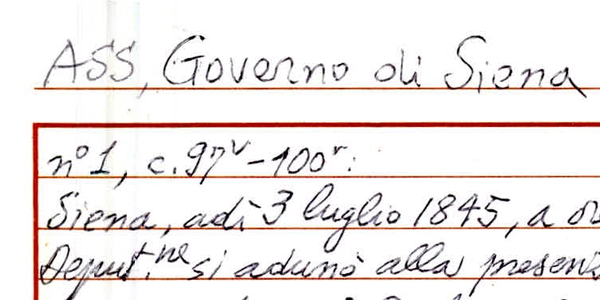 ASS, Governo di Siena
n° 1, c. 97v - 100r:
Siena, adì 3 luglio 1845, a
Deput.ne si adunò alla